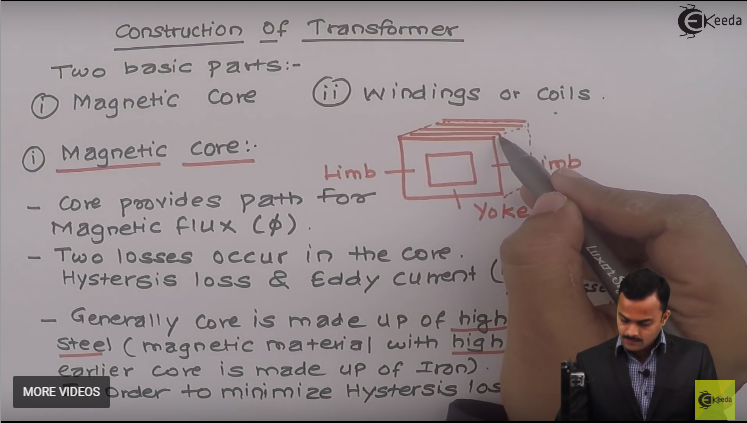 Construction of Transformer
EKeeda
Two basic parts:-
i Magnetic Core
ii Windings or coils.
i Magnetic core:-
Limb
Limb
Yoke
- Core provides path for
Magnetic flux (ϕ).
- Two losses occur in the core.
Hystersis loss & Eddy current (
- Generally core is made up of high
steel (magnetic material with high
earlier core is made up of Iron).
order to minimize Hystersis los
MORE VIDEOS
EKeeda